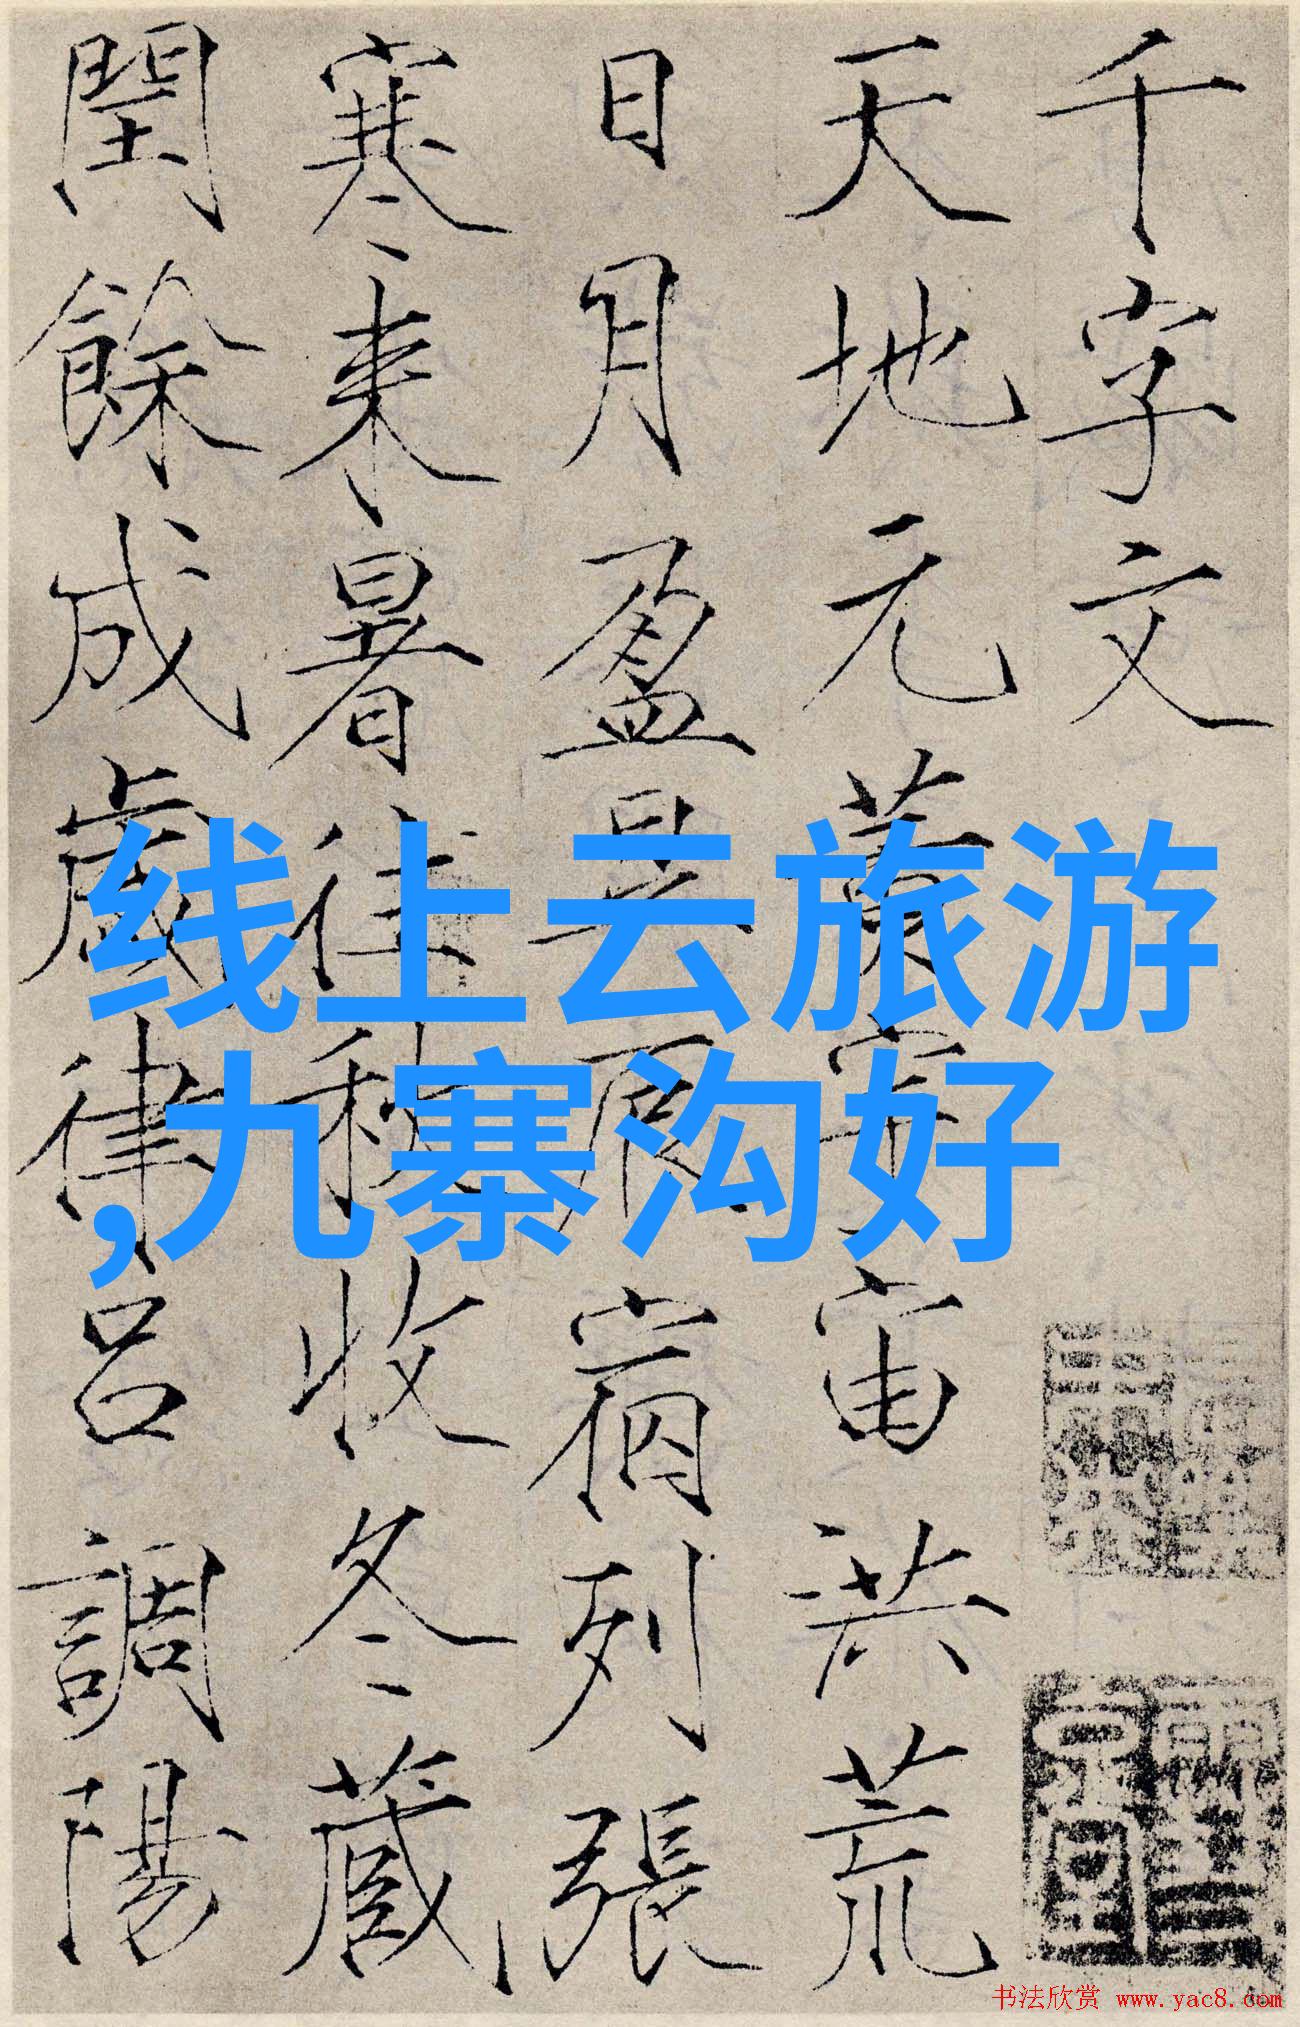 千字文
天地元黃宇宙洪荒
日月盈昃辰宿列張
寒来暑往秋收冬蔵
閏餘成歲律呂調陽
线上云旅游
,九寨沟好
书法欣赏 www.yac8.com